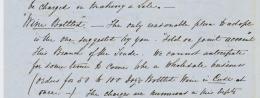 be charged on making a Sale. —
"Wine Bottled" — The only reasonable plan to adopt
is the one suggested by you. Hold on joint account
this Branch of the Trade. We cannot anticipate
for some time to come be a wholesale business
(orders for 50 to 100 Bottled Wine in Case at
once —) The charges are numerous a this Depts